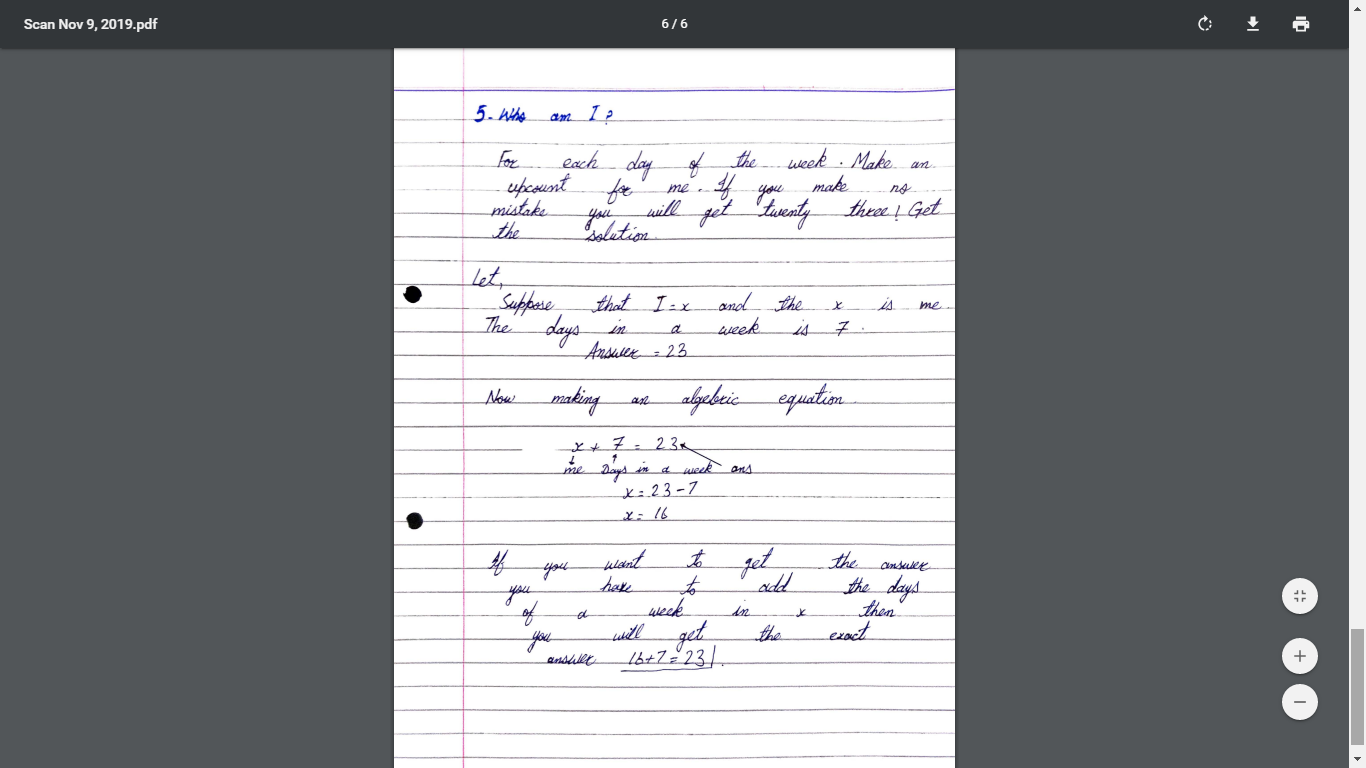 Scan Nov 9, 2019.pdf
6 / 6
5. Who am I?
For each day of the week. Make an
upcount for me. If you make no
mistake you will get twenty three! Get
the solution.
Let,
Suppose that I = x and the x is me.
The days in a week is 7.
Answer = 23
Now making an algebric equation.
x + 7 = 23
me Days in a week ans
x = 23 - 7
x = 16
If you want to get the answer
you have to add the days
of a week in x then
you will get the exact
answer 16+7=23.